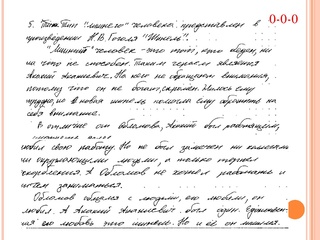 5. Тип "лишнего" человека представлен в
произведении Н.В. Гоголя "Шинель".
"Лишний" человек - это тот, кто обижен, ни
на что не способен. Таким героем является
Акакий Акакиевич. На него не обращают внимания,
потому что он не богат, скромен. Жилось ему
трудно, но новая шинель помогла ему обратить на
себя внимание.
В отличие от Обломова, Акакий был работящим,
любил свою работу. Но не был уважаем ни коллегами
ни окружающими людьми, а только терпел
оскорбления. А Обломов не хотел работать и
чем заниматься.
Обломов общался с людьми, его любили, он
любил. А Акакий Акакиевич был один. Единствен-
ная его любовь это шинель. Но и её он лишился.
0-0-0